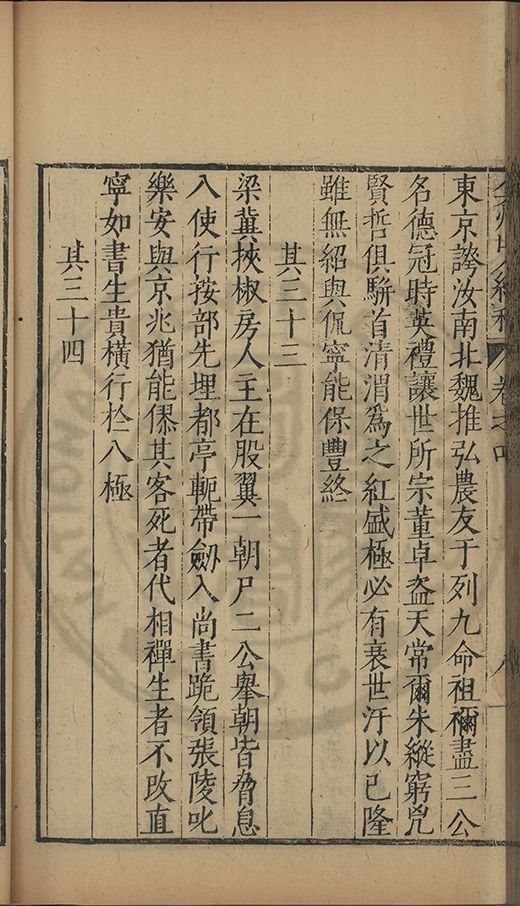 東京誇汝南北魏推弘農友于列九命祖禰盡三公
名德冠時英禮讓世所宗董卓盜天常爾朱縱窮兇
賢哲俱駢首清渭爲之紅盛極必有衰世汙以已隆
雖無紹與侃寧能保豐終
其三十三
梁冀挾椒房人主在股翼一朝尸二公舉朝皆脅息
入使行按部先埋都亭軛帶劒入尚書跪領張陵叱
樂安與京兆猶能傺其客死者代相禪生者不改直
寧如書生貴橫行於八極
其三十四